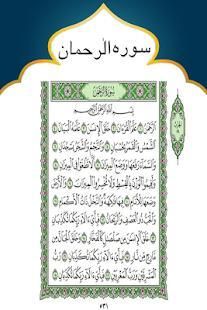 سوره الرحمان
سُورَةُ الرَّحْمٰن
بِسْمِ اللَّهِ الرَّحْمَٰنِ الرَّحِيمِ
الرَّحْمَٰنُ ۝١ عَلَّمَ الْقُرْءَانَ ۝٢ خَلَقَ الْإِنسَٰنَ ۝٣ عَلَّمَهُ الْبَيَانَ ۝٤
الشَّمْسُ وَالْقَمَرُ بِحُسْبَانٍ ۝٥ وَالنَّجْمُ وَالشَّجَرُ يَسْجُدَانِ ۝٦
وَالسَّمَاءَ رَفَعَهَا وَوَضَعَ الْمِيزَانَ ۝٧ أَلَّا تَطْغَوْا فِي الْمِيزَانِ ۝٨
وَأَقِيمُوا الْوَزْنَ بِالْقِسْطِ وَلَا تُخْسِرُوا الْمِيزَانَ ۝٩ وَالْأَرْضَ
وَضَعَهَا لِلْأَنَامِ ۝١٠ فِيهَا فَٰكِهَةٌ وَالنَّخْلُ ذَاتُ الْأَكْمَامِ ۝١١
وَالْحَبُّ ذُو الْعَصْفِ وَالرَّيْحَانُ ۝١٢ فَبِأَيِّ ءَالَاءِ رَبِّكُمَا تُكَذِّبَانِ ۝١٣
خَلَقَ الْإِنسَٰنَ مِن صَلْصَٰلٍ كَالْفَخَّارِ ۝١٤ وَخَلَقَ الْجَانَّ مِن
مَّارِجٍ مِّن نَّارٍ ۝١٥ فَبِأَيِّ ءَالَاءِ رَبِّكُمَا تُكَذِّبَانِ ۝١٦
رَبُّ الْمَشْرِقَيْنِ وَرَبُّ الْمَغْرِبَيْنِ ۝١٧ فَبِأَيِّ ءَالَاءِ رَبِّكُمَا تُكَذِّبَانِ ۝١٨
٥٣١